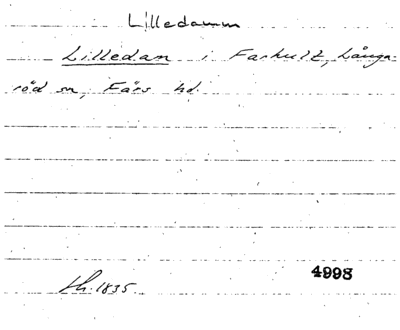 Lilledamm
Lilledan i Farhult, Långa-
röd sn, Färs hd.
th. 1835.
4998